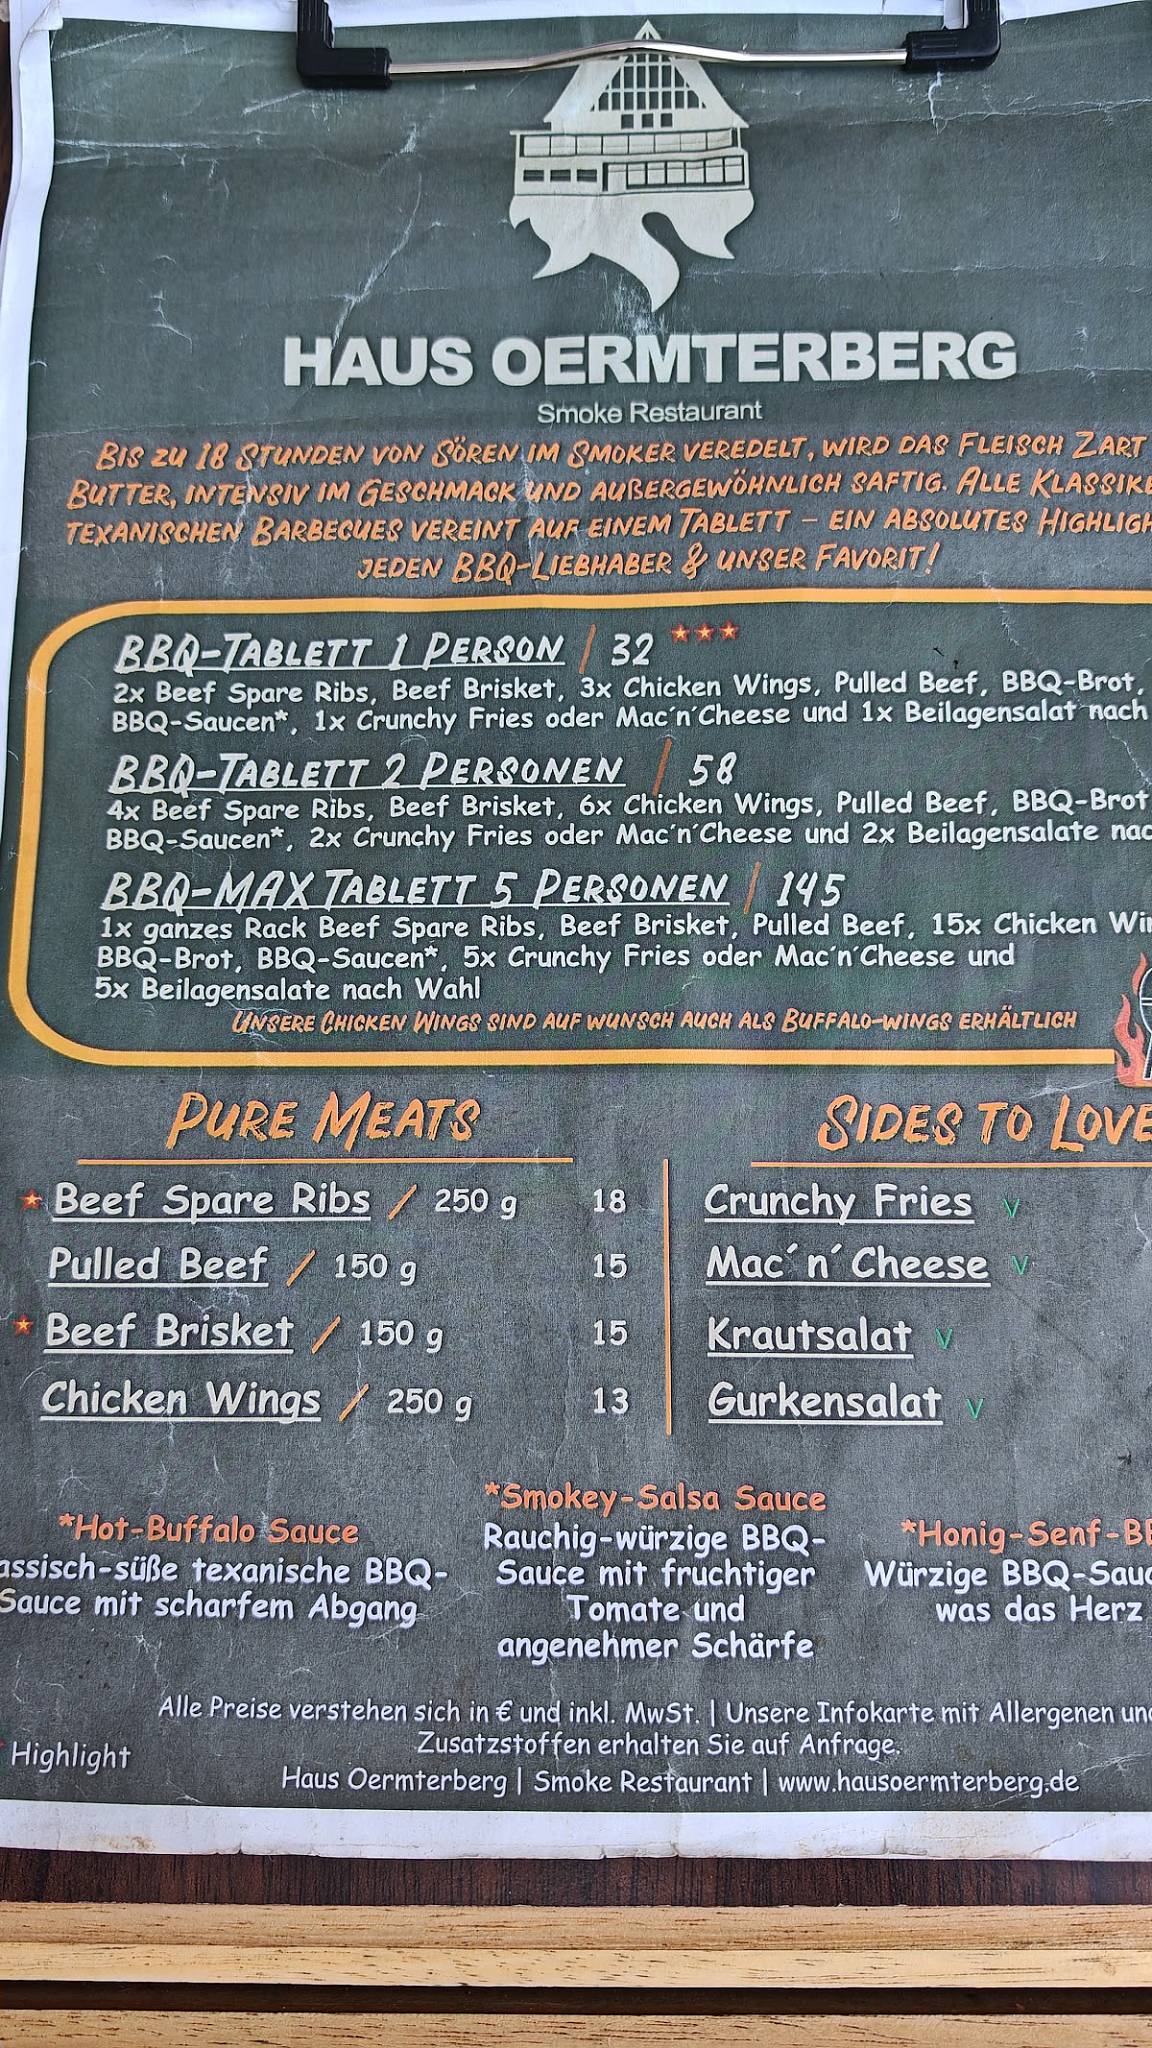 HAUS OERMTERBERG
Smoke Restaurant
BIS ZU 18 STUNDEN VON SÖREN IM SMOKER VEREDELT, WIRD DAS FLEISCH ZART
BUTTER, INTENSIV IM GESCHMACK UND AUßERGEWÖHNLICH SAFTIG. ALLE KLASSIKE
TEXANISCHEN BARBECUES VEREINT AUF EINEM TABLETT – EIN ABSOLUTES HIGHLIGH
JEDEN BBQ-LIEBHABER & UNSER FAVORIT!
BBQ-TABLETT 1 PERSON / 32
2x Beef Spare Ribs, Beef Brisket, 3x Chicken Wings, Pulled Beef, BBQ-Brot,
BBQ-Saucen*, 1x Crunchy Fries oder Mac´n´Cheese und 1x Beilagensalat nach
BBQ-TABLETT 2 PERSONEN / 58
4x Beef Spare Ribs, Beef Brisket, 6x Chicken Wings, Pulled Beef, BBQ-Brot
BBQ-Saucen*, 2x Crunchy Fries oder Mac´n´Cheese und 2x Beilagensalate nac
BBQ-MAX TABLETT 5 PERSONEN / 145
1x ganzes Rack Beef Spare Ribs, Beef Brisket, Pulled Beef, 15x Chicken Wi
BBQ-Brot, BBQ-Saucen*, 5x Crunchy Fries oder Mac´n´Cheese und
5x Beilagensalate nach Wahl
UNSERE CHICKEN WINGS SIND AUF WUNSCH AUCH ALS BUFFALO-WINGS ERHÄLTLICH
PURE MEATS
Beef Spare Ribs / 250 g 18
Pulled Beef / 150 g 15
Beef Brisket / 150 g 15
Chicken Wings / 250 g 13
SIDES TO LOVE
Crunchy Fries V
Mac´n´Cheese V
Krautsalat V
Gurkensalat V
*Hot-Buffalo Sauce
assisch-süße texanische BBQ-
Sauce mit scharfem Abgang
*Smokey-Salsa Sauce
Rauchig-würzige BBQ-
Sauce mit fruchtiger
Tomate und
angenehmer Schärfe
*Honig-Senf-BB
Würzige BBQ-Sauc
was das Herz
Alle Preise verstehen sich in € und inkl. MwSt. | Unsere Infokarte mit Allergenen und
Zusatzstoffen erhalten Sie auf Anfrage.
Highlight
Haus Oermterberg | Smoke Restaurant | www.hausoermterberg.de